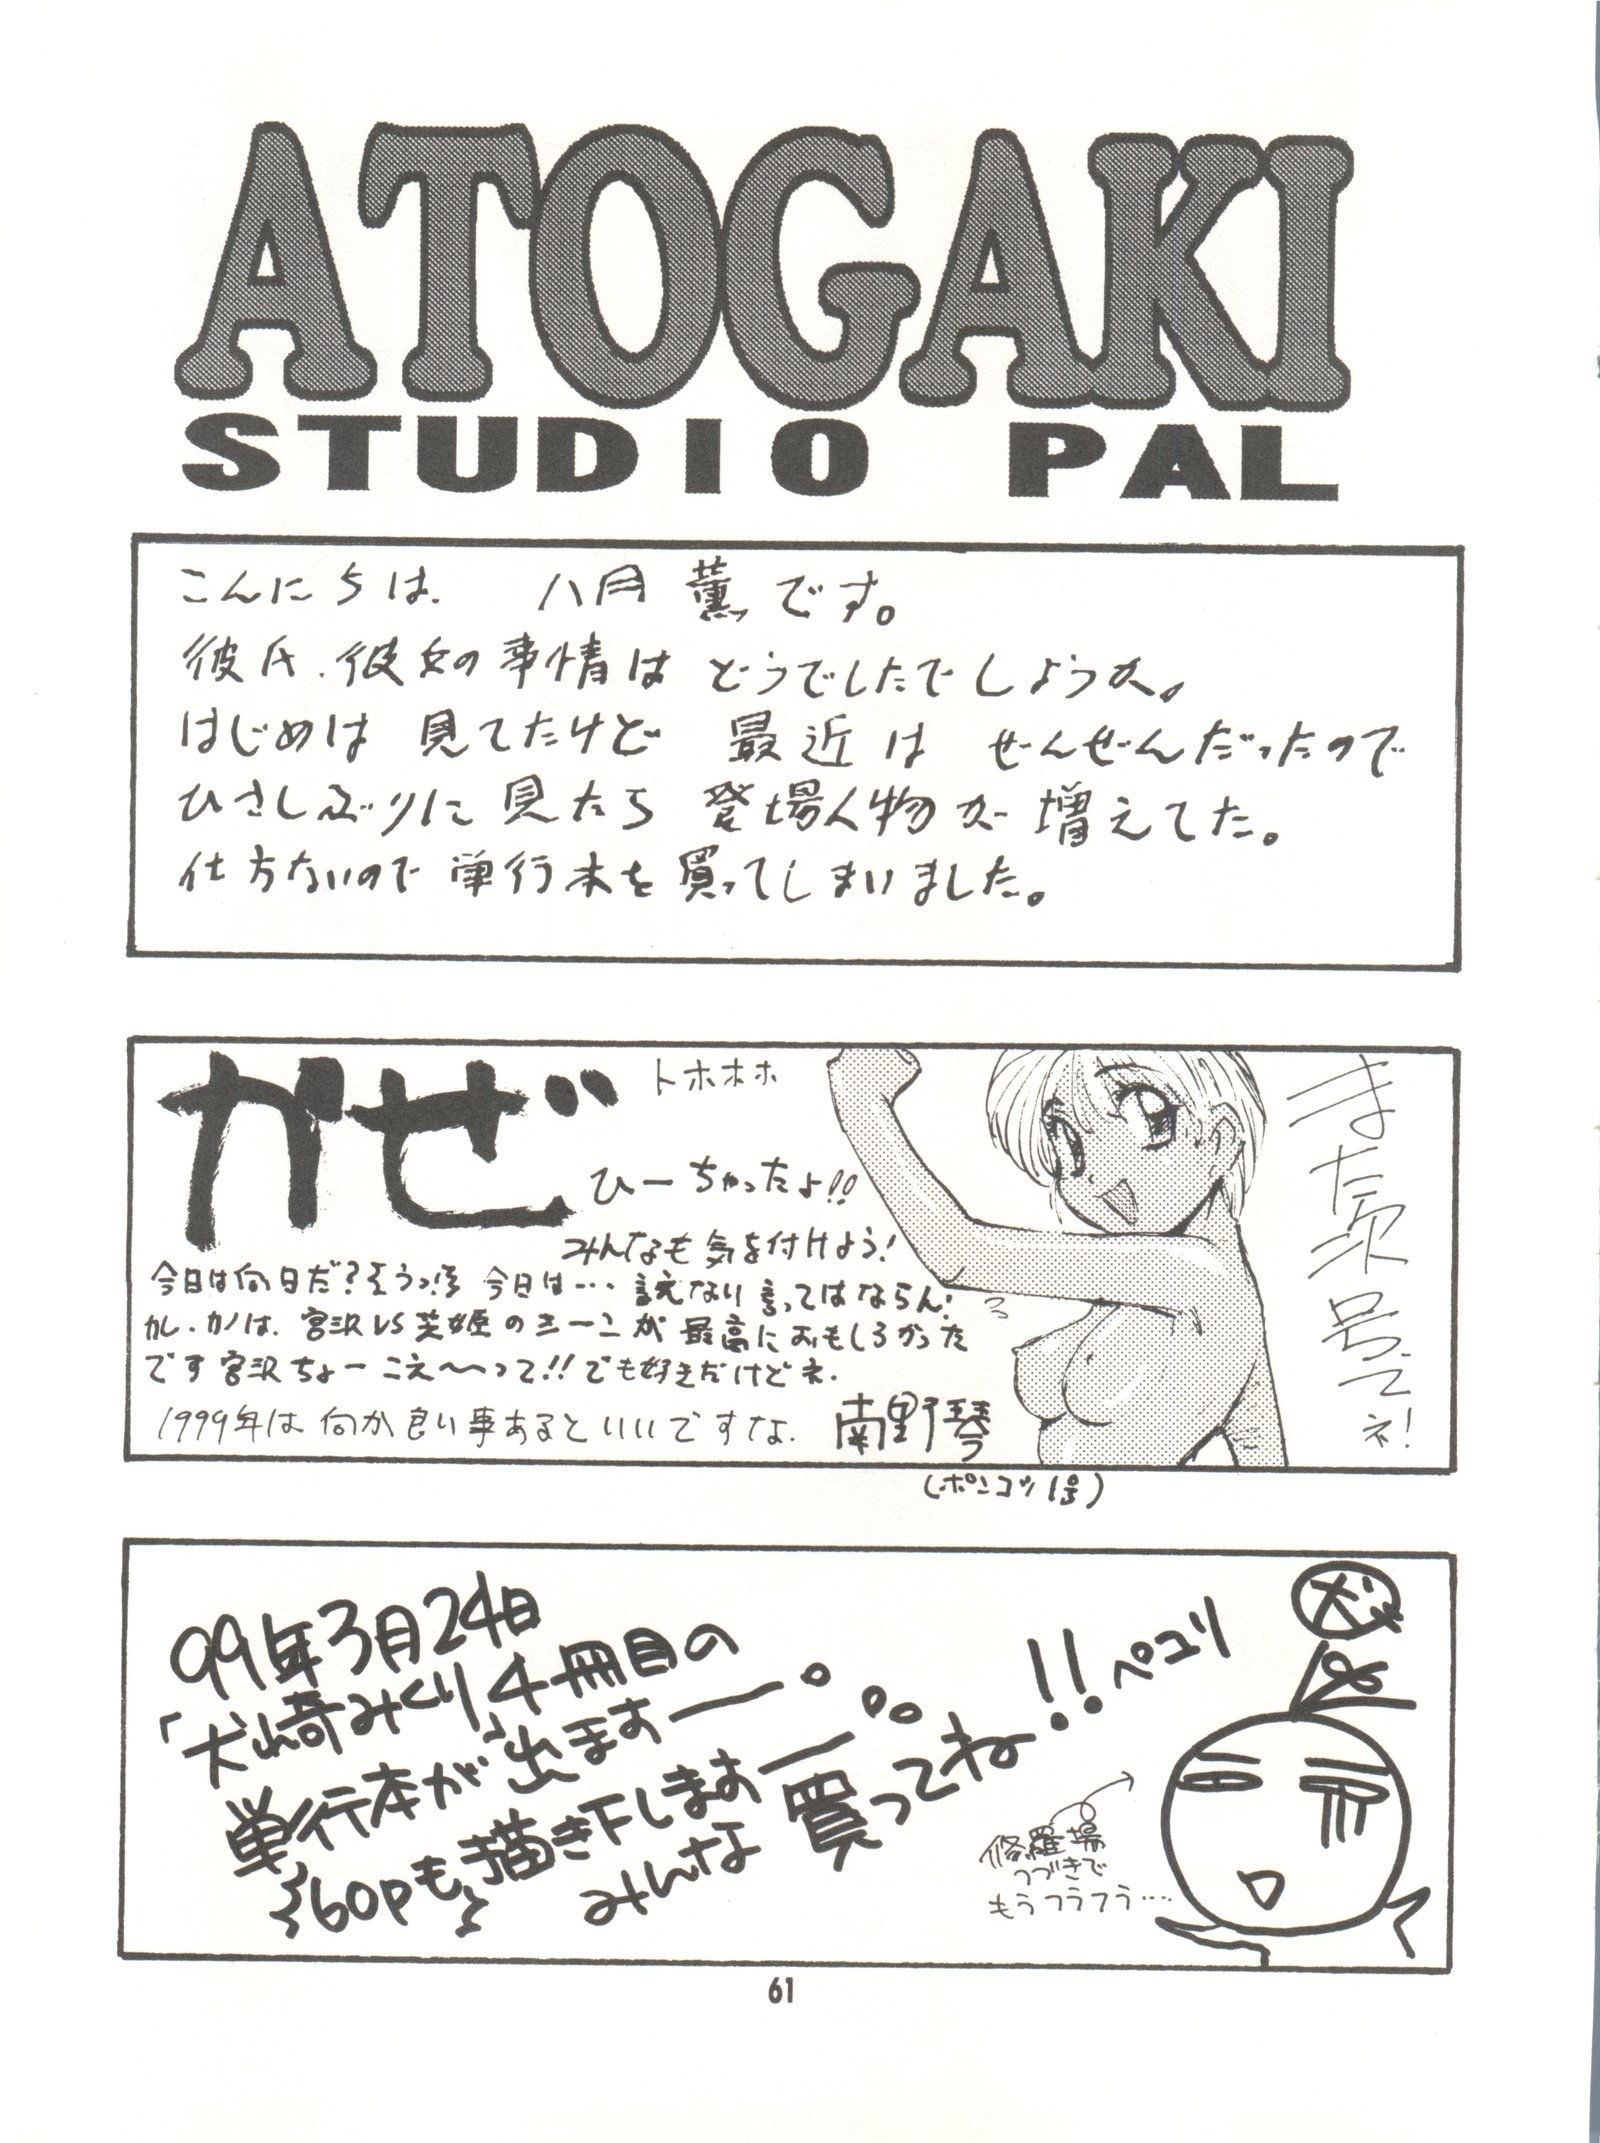 ATOGAKI
STUDIO PAL
こんにちは、 八月 薫です。
彼氏、彼女の事情は どうでしたでしょうか。
はじめは 見てたけど 最近は ぜんぜんだったので
ひさしぶりに 見たら 登場人物が 増えてた。
仕方ないので 単行本を 買ってしまいました。
かぜ
トホホホ
ひーちゃったよ!!
みんなも 気を付けよう!
今日は何日だ?そうっ!そ 今日は… 言えない言ってはならん!
カレ・カノは、宮沢VS芝姫のとーこが 最高に おもしろかった
です 宮沢ちょー こえ〜〜って!! でも好きだけどネ.
1999年は 何か良い事あるといいですな.
南野琴
(ポンコツ1号)
また次号でネ!
99年3月24日
「犬崎みくり」4冊目の
単行本が出ます──。
60Pも描き下します──。。
みんな 買ってね!!
ペコリ
犬
修羅場
つづきで
もうフラフラ・・・・
61